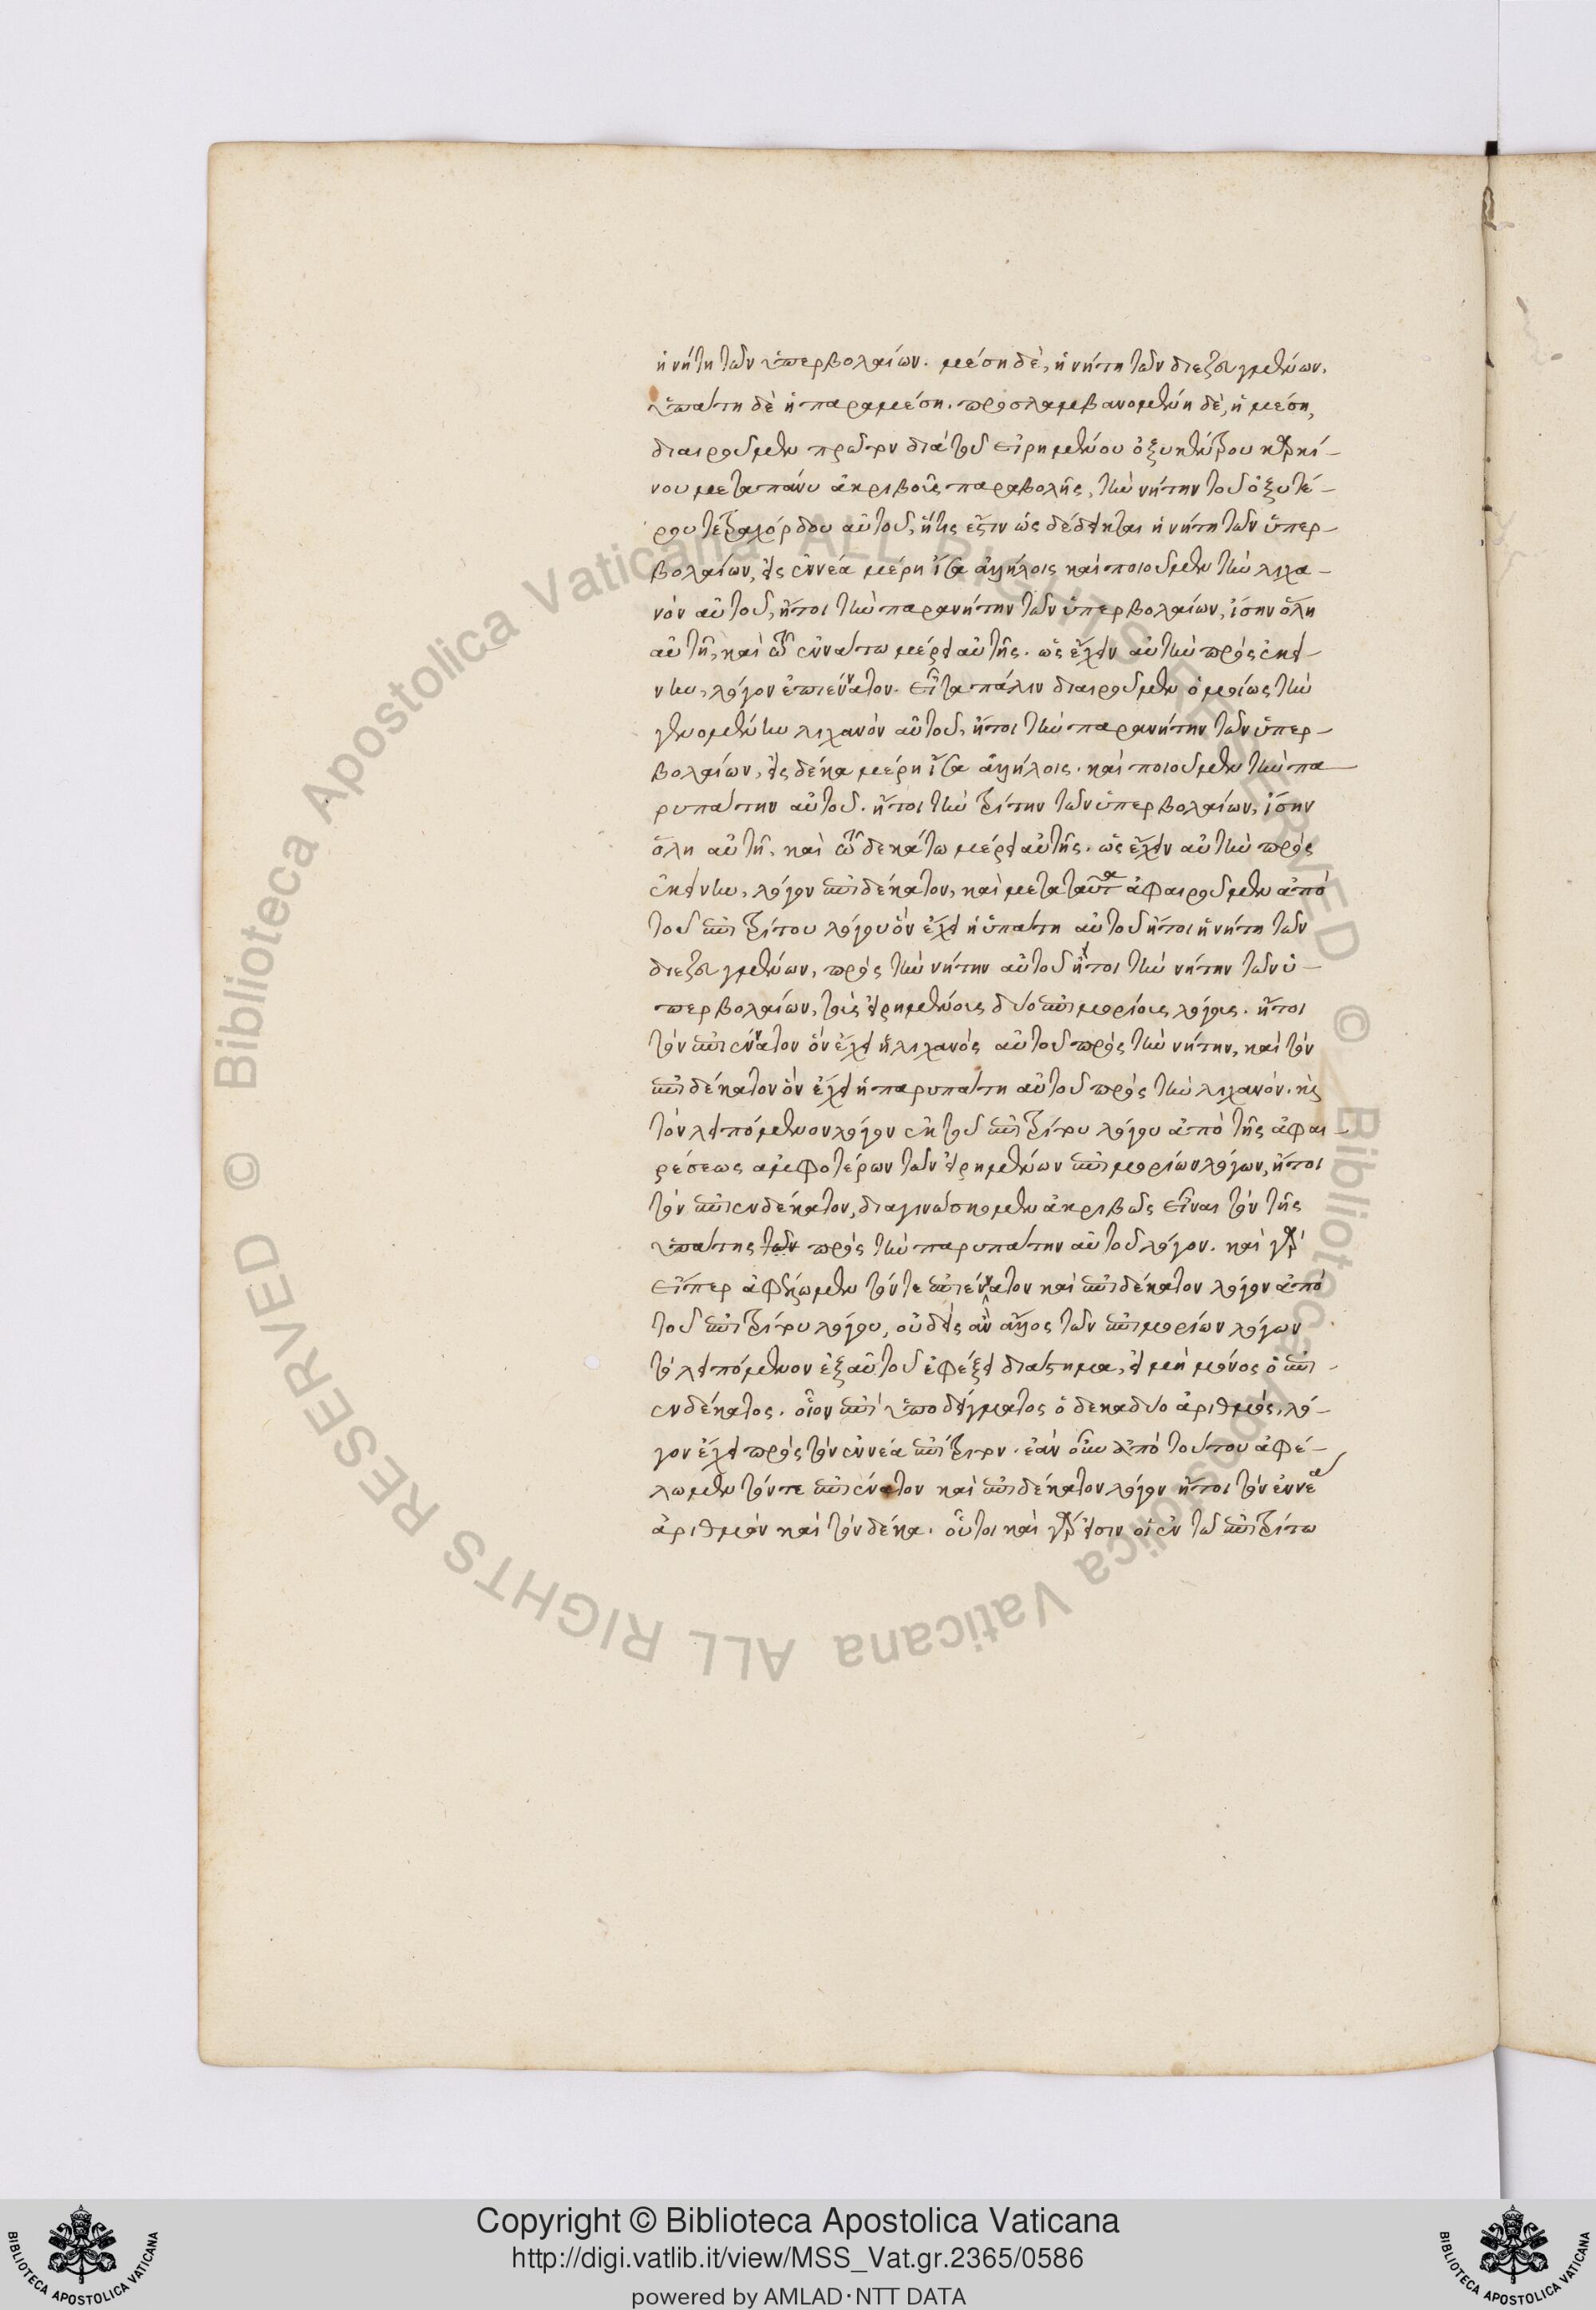 ἡ νήτη τῶν ὑπερβολαίων. μέση δὲ, ἡ νήτη τῶν διεζευγμένων.
ὑπάτη δὲ ἡ παραμέση. προσλαμβανομένη δὲ, ἡ μέση,
διαιροῦμεν πρῶτον διὰ τοῦ εἰρημένου ὀξυκέντρου καρκί-
νου μετα πάνυ ἀκριβοῦς παραβολῆς, τὴν νήτην τοῦ ὀξυτέ-
ρου τετραχόρδου αὐτοῦ, ἥτις ἐστιν ὡς δέδεικται ἡ νήτη τῶν ὑπερ-
βολαίων, εἰς ἐννέα μέρη ἴσα ἀλλήλοις καὶ ποιοῦμεν τὴν λιχα-
νὸν αὐτοῦ, ἤτοι τὴν παρανήτην τῶν ὑπερβολαίων, ἴσην ὅλη
αὐτῆ, καὶ τῶ ἐννάτω μέρει αὐτῆς. ὡς ἔχειν αὐτὴν πρὸς ἐκεί-
νην, λόγον ἐπιέννατον. εἶτα πάλιν διαιροῦμεν ὁμοίως τὴν
γενομένην λιχανὸν αὐτοῦ, ἤτοι τὴν παρανήτην τῶν ὑπερ-
βολαίων, εἰς δέκα μέρη ἴσα ἀλλήλοις. καὶ ποιοῦμεν τὴν πα
ρυπάτην αὐτοῦ. ἤτοι τὴν τρίτην τῶν ὑπερβολαίων, ἴσην
ὅλη αὐτῆ, καὶ τῶ δεκάτω μέρει αὐτῆς. ὡς ἔχειν αὐτὴν πρὸς
ἐκείνην, λόγον ἐπιδέκατον, καὶ μετα ταῦτα ἀφαιροῦμεν ἀπὸ
τοῦ ἐπιτρίτου λόγου ὃν ἔχει ἡ ὑπάτη αὐτοῦ ἤτοι ἡ νήτη τῶν
διεζευγμένων, πρὸς τὴν νήτην αὐτοῦ ἤτοι τὴν νήτην τῶν ὑ-
περβολαίων, τοῖς εἰρημένοις δυο ἐπιμορίοις λόγοις. ἤτοι
τὸν ἐπιέννατον ὃν ἔχει ἡ λιχανὸς αὐτοῦ πρὸς τὴν νήτην, καὶ τὸν
ἐπιδέκατον ὃν ἔχει ἡ παρυπάτη αὐτοῦ πρὸς τὴν λιχανόν. καὶ
τὸν λειπόμενον λόγον ἐκ τοῦ ἐπιτρίτου λόγου ἀπὸ τῆς ἀφαι-
ρέσεως ἀμφοτέρων τῶν εἰρημένων ἐπιμορίων λόγων, ἤτοι
τὸν ἐπιενδέκατον, διαγινώσκομεν ἀκριβῶς εἶναι τὸν τῆς
ὑπάτης τῶν πρὸς τὴν παρυπάτην αὐτοῦ λόγον. καὶ γὰρ
εἴπερ ἀφέλωμεν τόντε ἐπιέννατον καὶ ἐπιδέκατον λόγον ἀπὸ
τοῦ ἐπιτρίτου λόγου, οὐδεὶς ἂν ἄλλος τῶν ἐπιμορίων λόγων
τὸ λειπόμενον ἐξ αὐτοῦ ἐφέξει διάστημα, εἰ μὴ μόνος ὁ ἐπι-
ενδέκατος. οἷον ἐπὶ ὑποδείγματος ὁ δεκαδύο ἀριθμὸς, λό-
γον ἔχει πρὸς τὸν ἐννέα ἐπίτριτον. ἐὰν οὖν ἀπὸ τούτου ἀφέ-
λωμεν τόντε ἐπιένατον καὶ ἐπιδέκατον λόγον ἤτοι τὸν ἐννέα
ἀριθμὸν καὶ τὸν δέκα. οὗτοι καὶ γάρ εἰσιν οἱ ἐν τῶ ἐπιτρίτω
Copyright © Biblioteca Apostolica Vaticana
http://digi.vatlib.it/view/MSS_Vat.gr.2365/0586
powered by AMLAD·NTT DATA